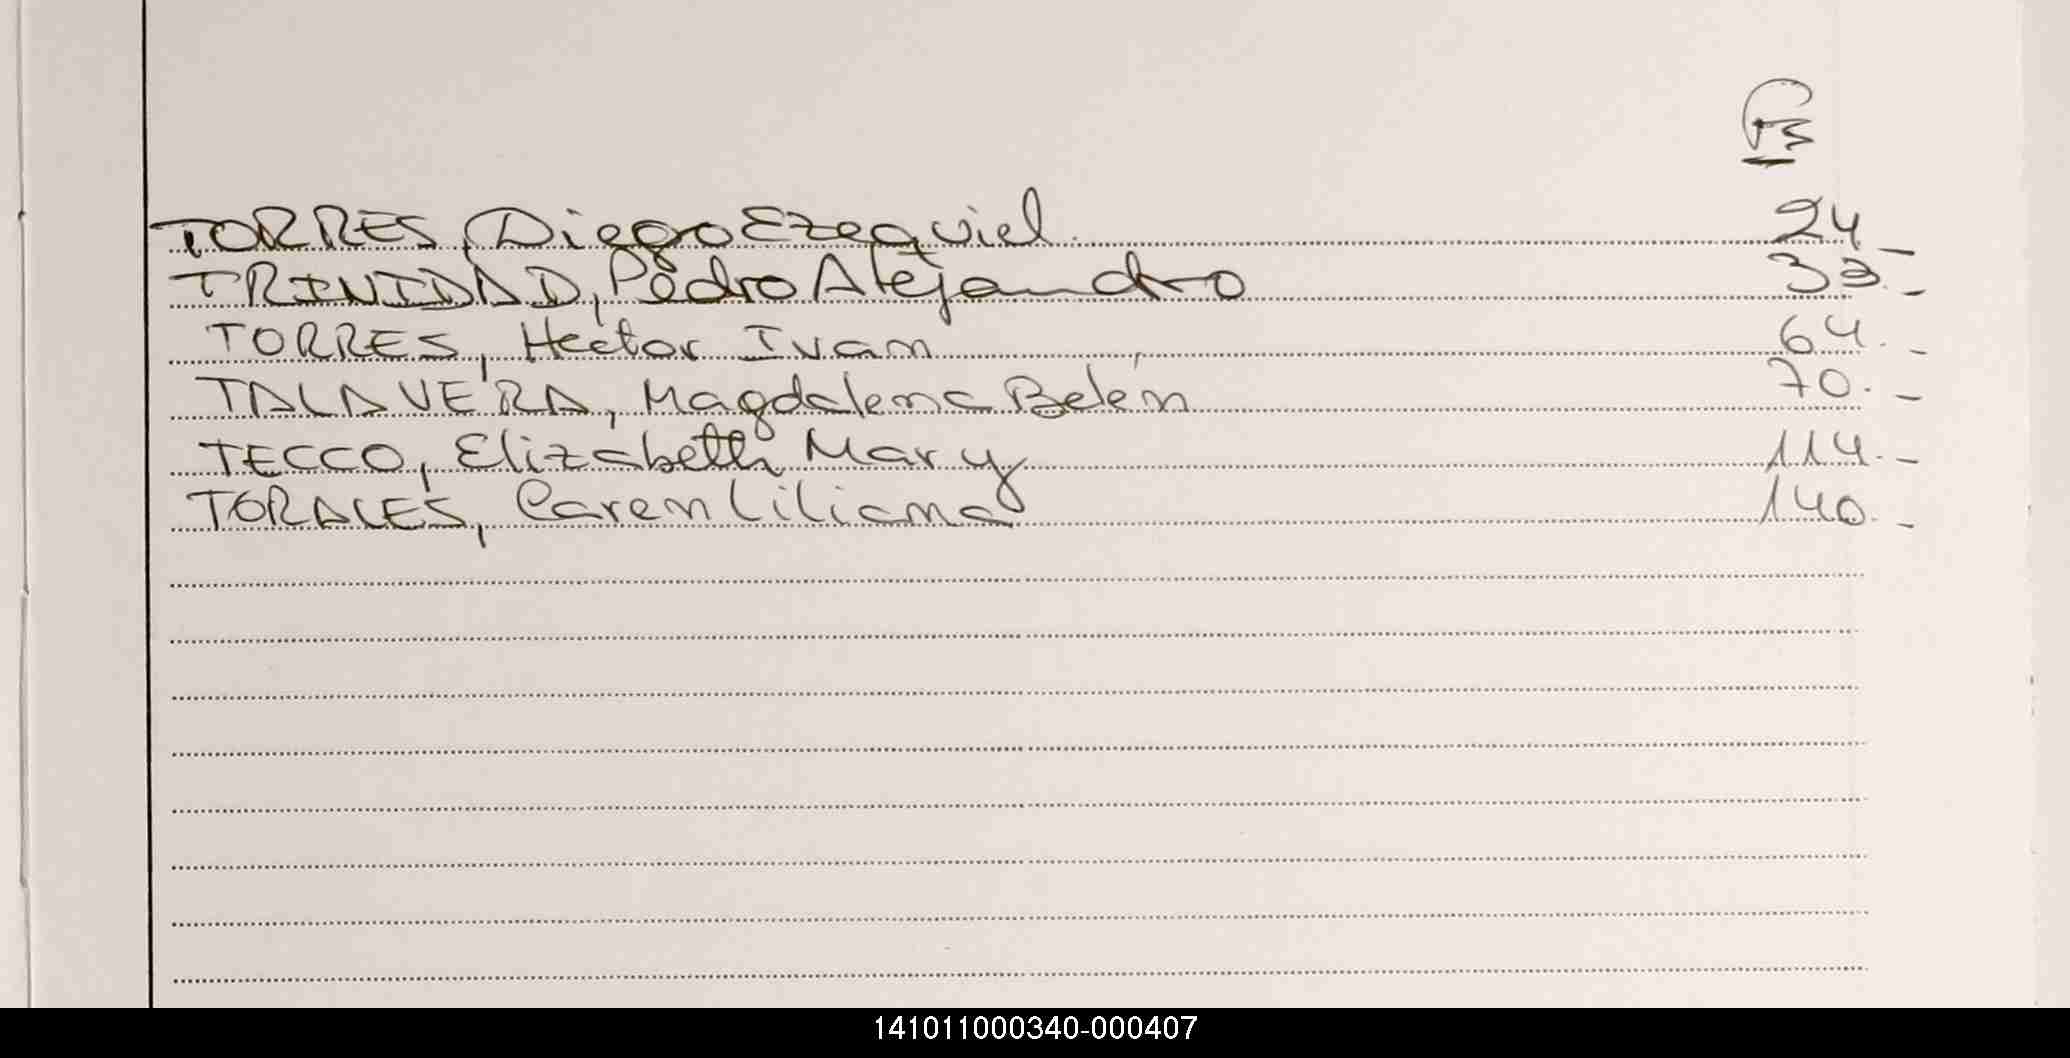 TORRES, Diego Ezequiel 24.-
TRINIDAD, Pedro Alejandro 33.-
TORRES, Hector Ivan 64.-
TALAVERA, Magdalena Belén 70.-
TECCO, Elizabeth Mary 114.-
TORALES, Caren Liliana 140.-
141011000340-000407